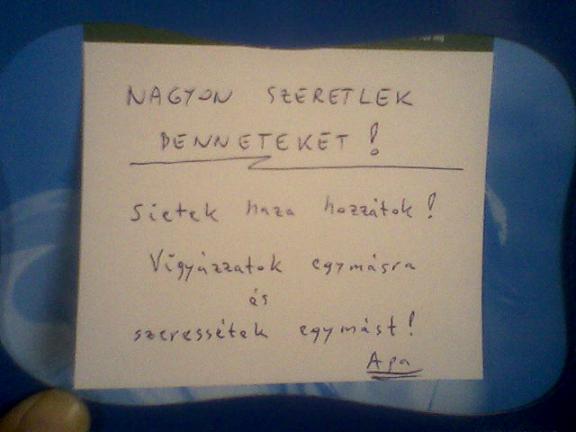 NAGYON SZERETLEK
BENNETEKET!
Sietek haza hozzátok!
Vigyázzatok egymásra
és
szeressétek egymást!
Apa